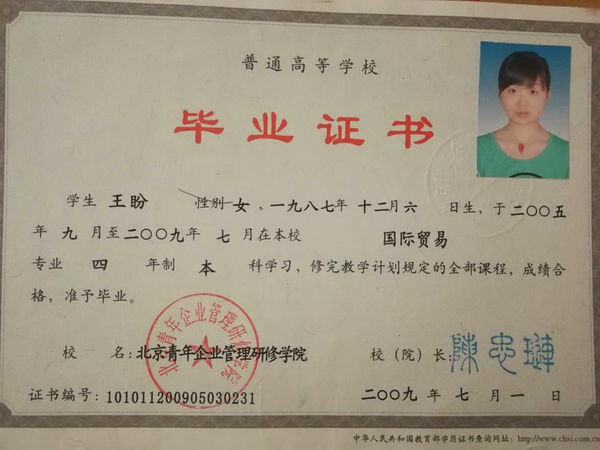 普通高等学校
毕业证书
学生 王盼 性别 女，一九八七年 十二月 六 日生，于二〇〇五
年 九 月至二〇〇九年 七 月在本校 国际贸易
专业 四 年制 本 科学习，修完教学计划规定的全部课程，成绩合
格，准予毕业。
北京青年企业管理研修学院
校 名：北京青年企业管理研修学院 校（院）长：陳忠璉
证书编号：101011200905030231 二〇〇九年 七 月 一 日
中华人民共和国教育部学历证书查询网址：http://www.chsi.com.cn